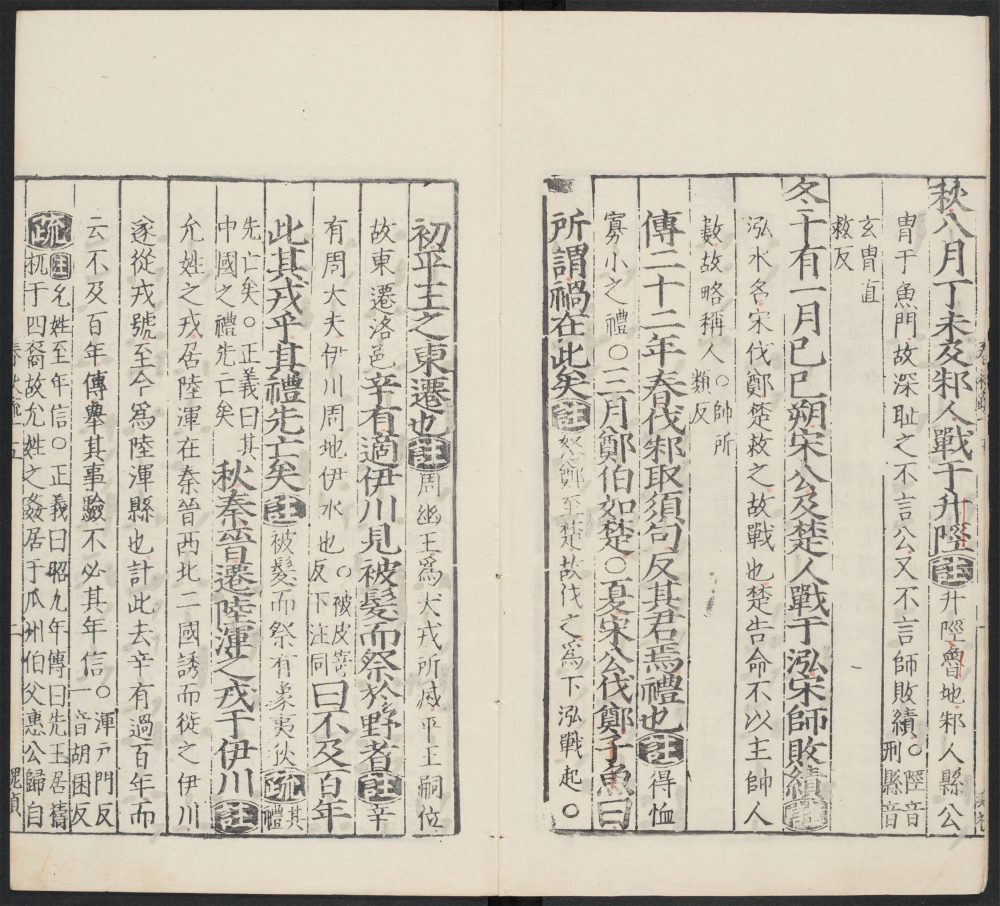 秋八月丁未及邾人戰于升陘註升陘魯地邾人縣公
冑于魚門故深恥之不言公又不言師敗績○陘音刑縣音
玄冑直救反
冬十有一月己巳朔宋公及楚人戰于泓宋師敗績註
泓水名宋伐鄭楚救之故戰也楚告命不以主帥人
數故略稱人○帥所類反
傳二十二年春伐邾取須句反其君焉禮也註得恤
寡小之禮○三月鄭伯如楚○夏宋公伐鄭子魚曰
所謂禍在此矣註怒鄭至楚故伐之為下泓戰起○
初平王之東遷也註周幽王爲犬戎所滅平王嗣位
故東遷洛邑辛有適伊川見被髮而祭於野者註辛
有周大夫伊川周地伊水也○被皮寄反下注同曰不及百年
此其戎乎其禮先亡矣註被髮而祭有象夷狄疏其禮
先亡矣○正義曰其中國之禮先亡矣秋秦晉遷陸渾之戎于伊川註
允姓之戎居陸渾在秦晉西北二國誘而徙之伊川
遂從戎號至今爲陸渾縣也計此去辛有過百年而
云不及百年傳舉其事驗不必其年信○渾戶門反一音胡困反
疏註允姓至年信○正義曰昭九年傳曰先王居檮
杌于四裔故允姓之姦居于瓜州伯父惠公歸自